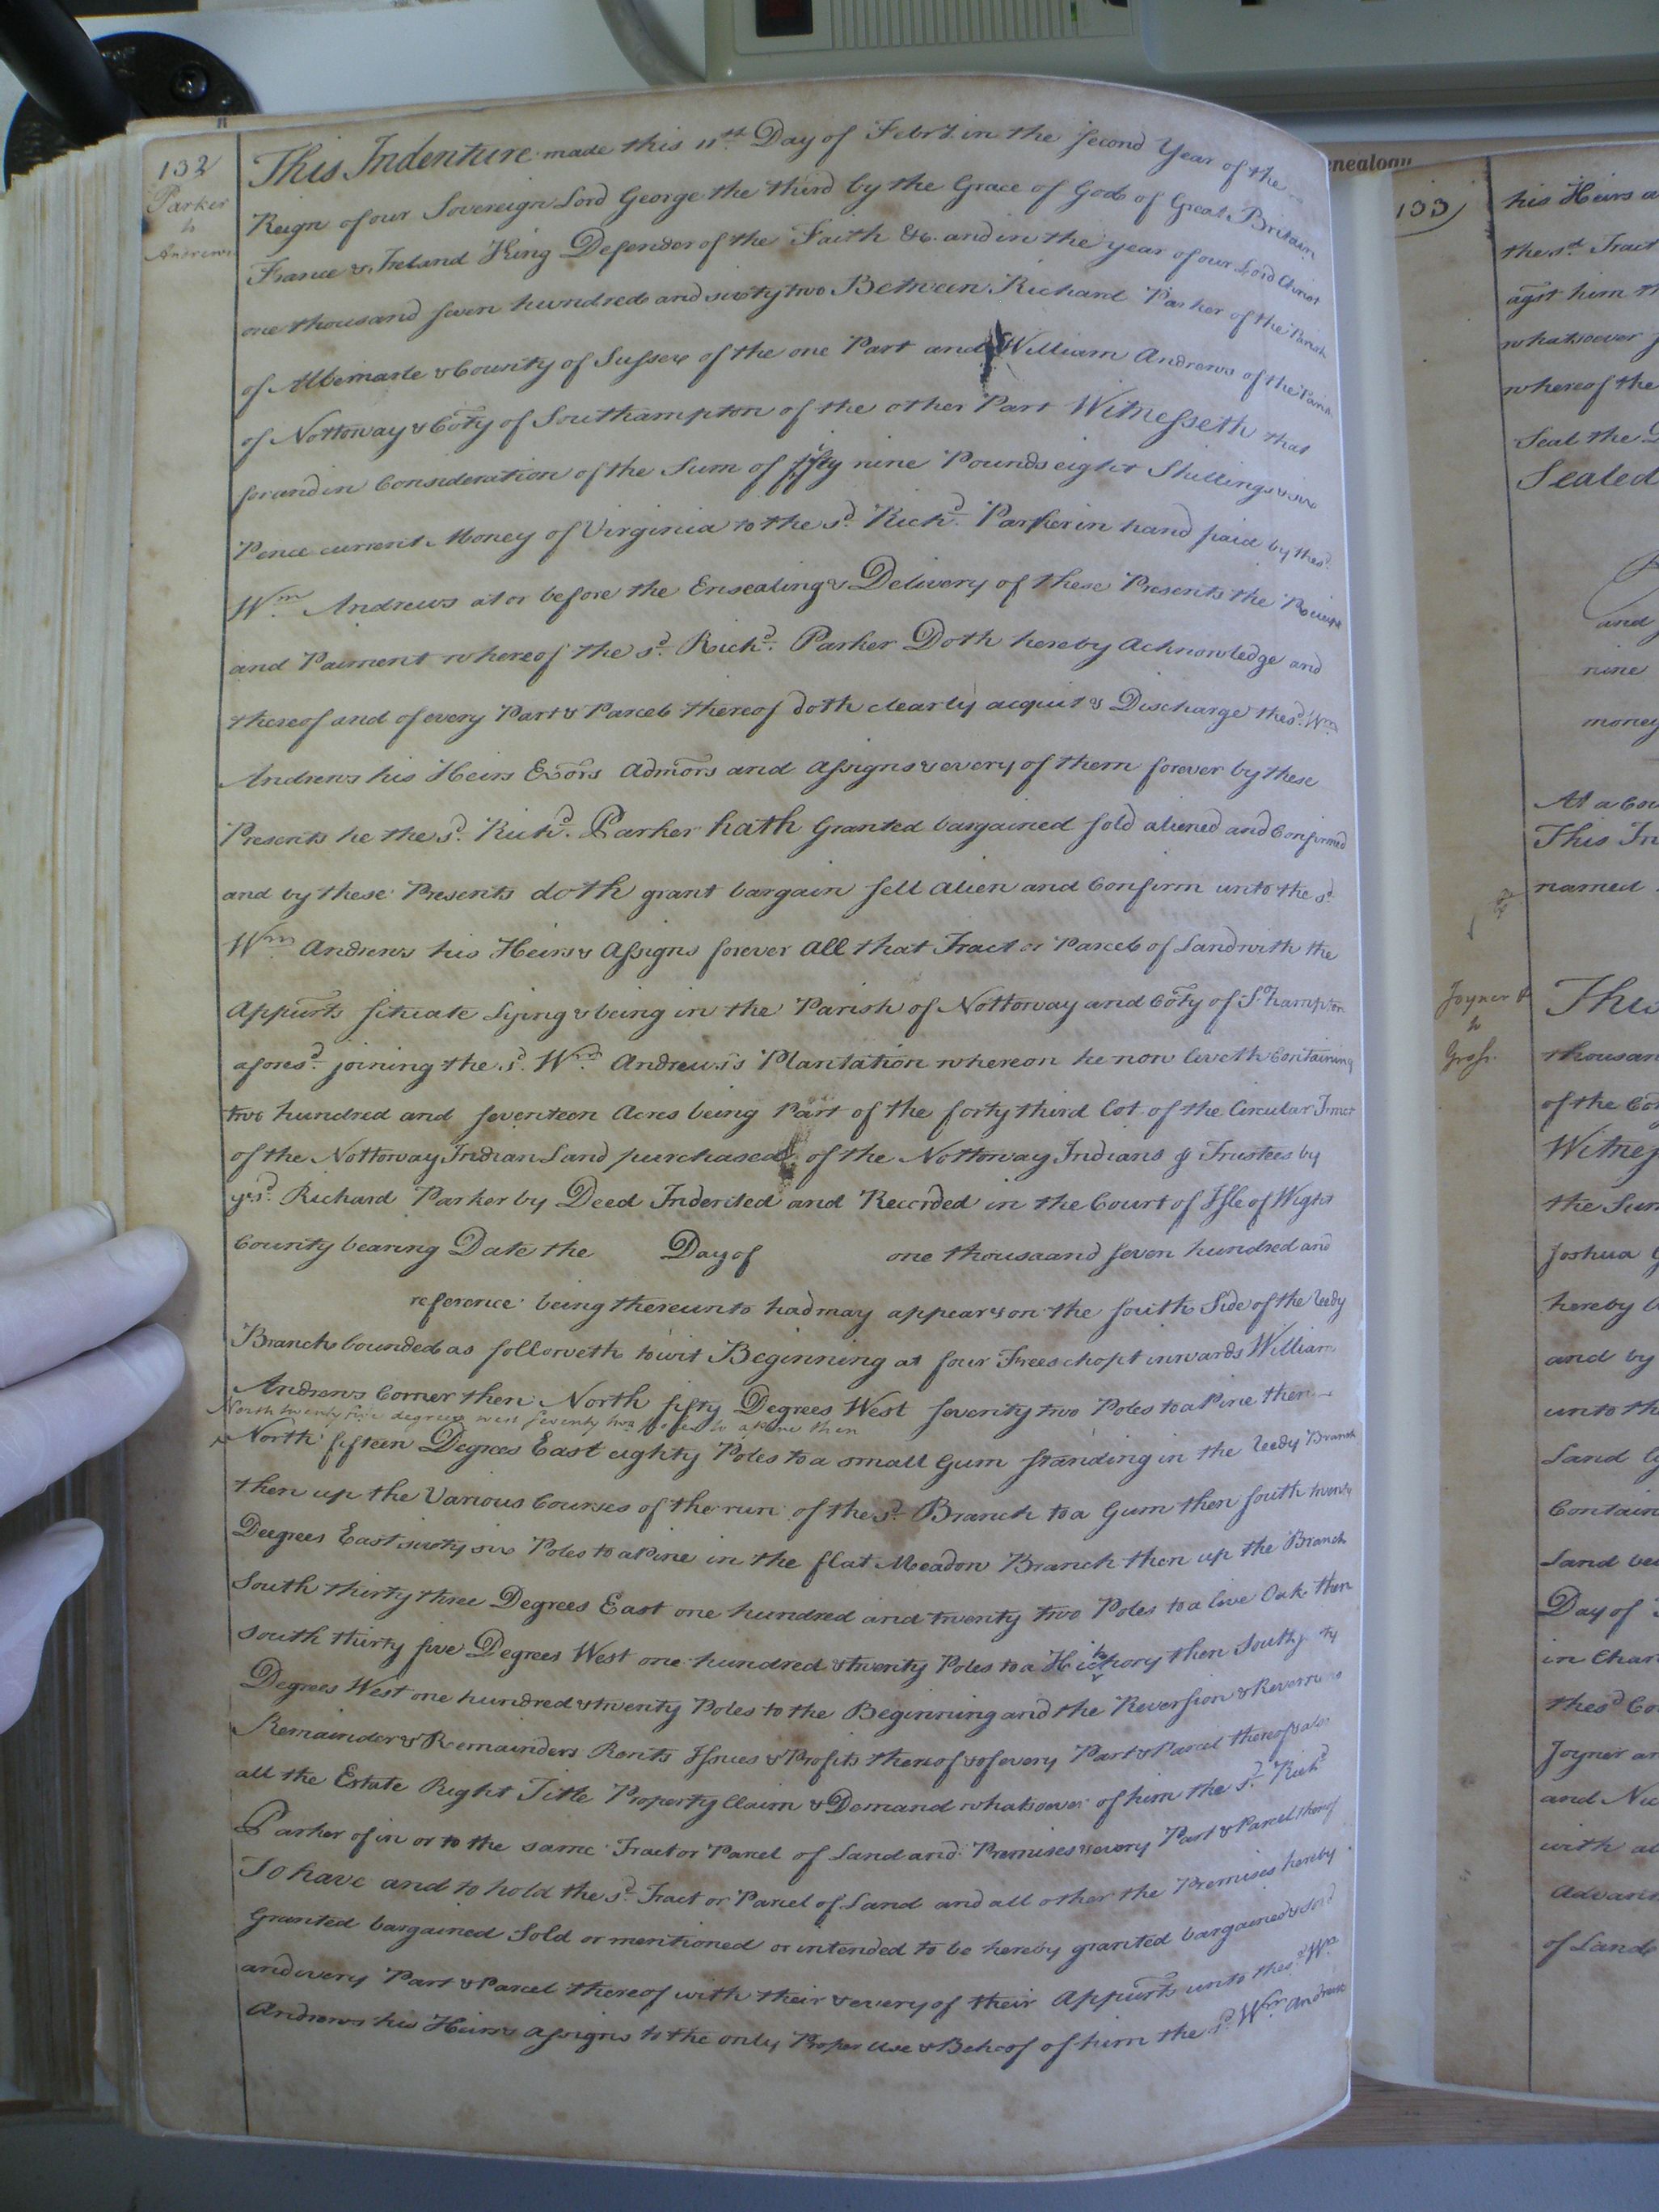 132
Parker
to
Andrews
This Indenture made this 11th Day of Febry. in the Second Year of the
Reign of our Sovereign Lord George the third by the Grace of God of Great Britain
France & Ireland King Defender of the Faith &c. and in the year of our Lord Christ
one thousand seven hundred and sixty two Between Richard Parker of the Parish
of Albemarle & County of Sussex of the one Part and William Andrews of the Parish
of Nottoway & Coty of Southampton of the other Part Witnesseth that
for and in Consideration of the Sum of fifty nine Pounds eight Shillings & six
Pence current Money of Virginia to the sd. Richd. Parker in hand paid by the sd.
Wm. Andrews at or before the Ensealing & Delivery of these Presents the Receipt
and Paiment whereof the sd. Richd. Parker Doth hereby Acknowledge and
thereof and of every Part & Parcel thereof doth clearly acquit & Discharge the sd. Wm.
Andrews his Heirs Exors Admors and Assigns & every of them forever by these
Presents he the sd. Richd. Parker hath Granted bargained sold aliened and Confirmed
and by these Presents doth grant bargain sell alien and Confirm unto the sd.
Wm. Andrews his Heirs & Assigns forever All that Tract or Parcel of Land with the
Appurts situate Lying & being in the Parish of Nottoway and Coty of S.hampton
aforesd. joining the sd. Wm. Andrews's Plantation whereon he now liveth Containing
two hundred and seventeen Acres being Part of the forty third Lot of the Circular Tract
of the Nottoway Indian Land purchased of the Nottoway Indians & Trustees by
ye sd. Richard Parker by Deed Indented and Recorded in the Court of Isle of Wight
County bearing Date the Day of one thousaand seven hundred and
reference being thereunto had may appear & on the South Side of the Reedy
Branch bounded as followeth to wit Beginning at four Trees chopt inwards William
Andrews Corner then North fifty Degrees West seventy two Poles to a Pine then
North twenty five degrees west seventy two poles to a pine then
North fifteen Degrees East eighty Poles to a small Gum standing in the Reedy Branch
then up the Various Courses of the run of the sd. Branch to a Gum then South twenty
Deegrees East sixty six Poles to a Pine in the flat Meadow Branch then up the Branch
South thirty three Degrees East one hundred and twenty two Poles to a live Oak then
South thirty five Degrees West one hundred & twenty Poles to a Hickory then South
Degrees West one hundred & twenty Poles to the Beginning and the Reversion & Reversions
Remainder & Remainders Rents Issues & Profits thereof & of every Part & Parcel thereof & also
all the Estate Right Title Property Claim & Demand whatsoever of him the sd. Richd
Parker of in or to the same Tract or Parcel of Land and Premises & every Part & Parcel thereof
To have and to hold the sd. Tract or Parcel of Land and all other the Premises hereby
Granted bargained Sold or mentioned or intended to be hereby granted bargained & sold
and every Part & Parcel thereof with their & every of their Appurts unto the sd. Wm
Andrews his Heirs & Assigns to the only Proper use & Behoof of him the sd. Wm Andrews
enealogy
133
his Heirs a
the sd. Tract
agst him th
whatsoever
whereof the
Seal the
Sealed
and
nine
money
At a Cou
This In
named
Joyner
to
This
thousan
of the Co
Witnes
the Sum
Joshua
hereby
and by
unto th
Land
Contain
Land be
Day of
in Char
the sd Co
Joyner an
and
with al
Advan
of Land